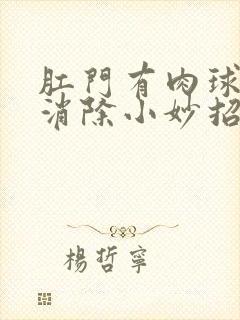 肛門有肉球
消除小妙招
楊哲寧